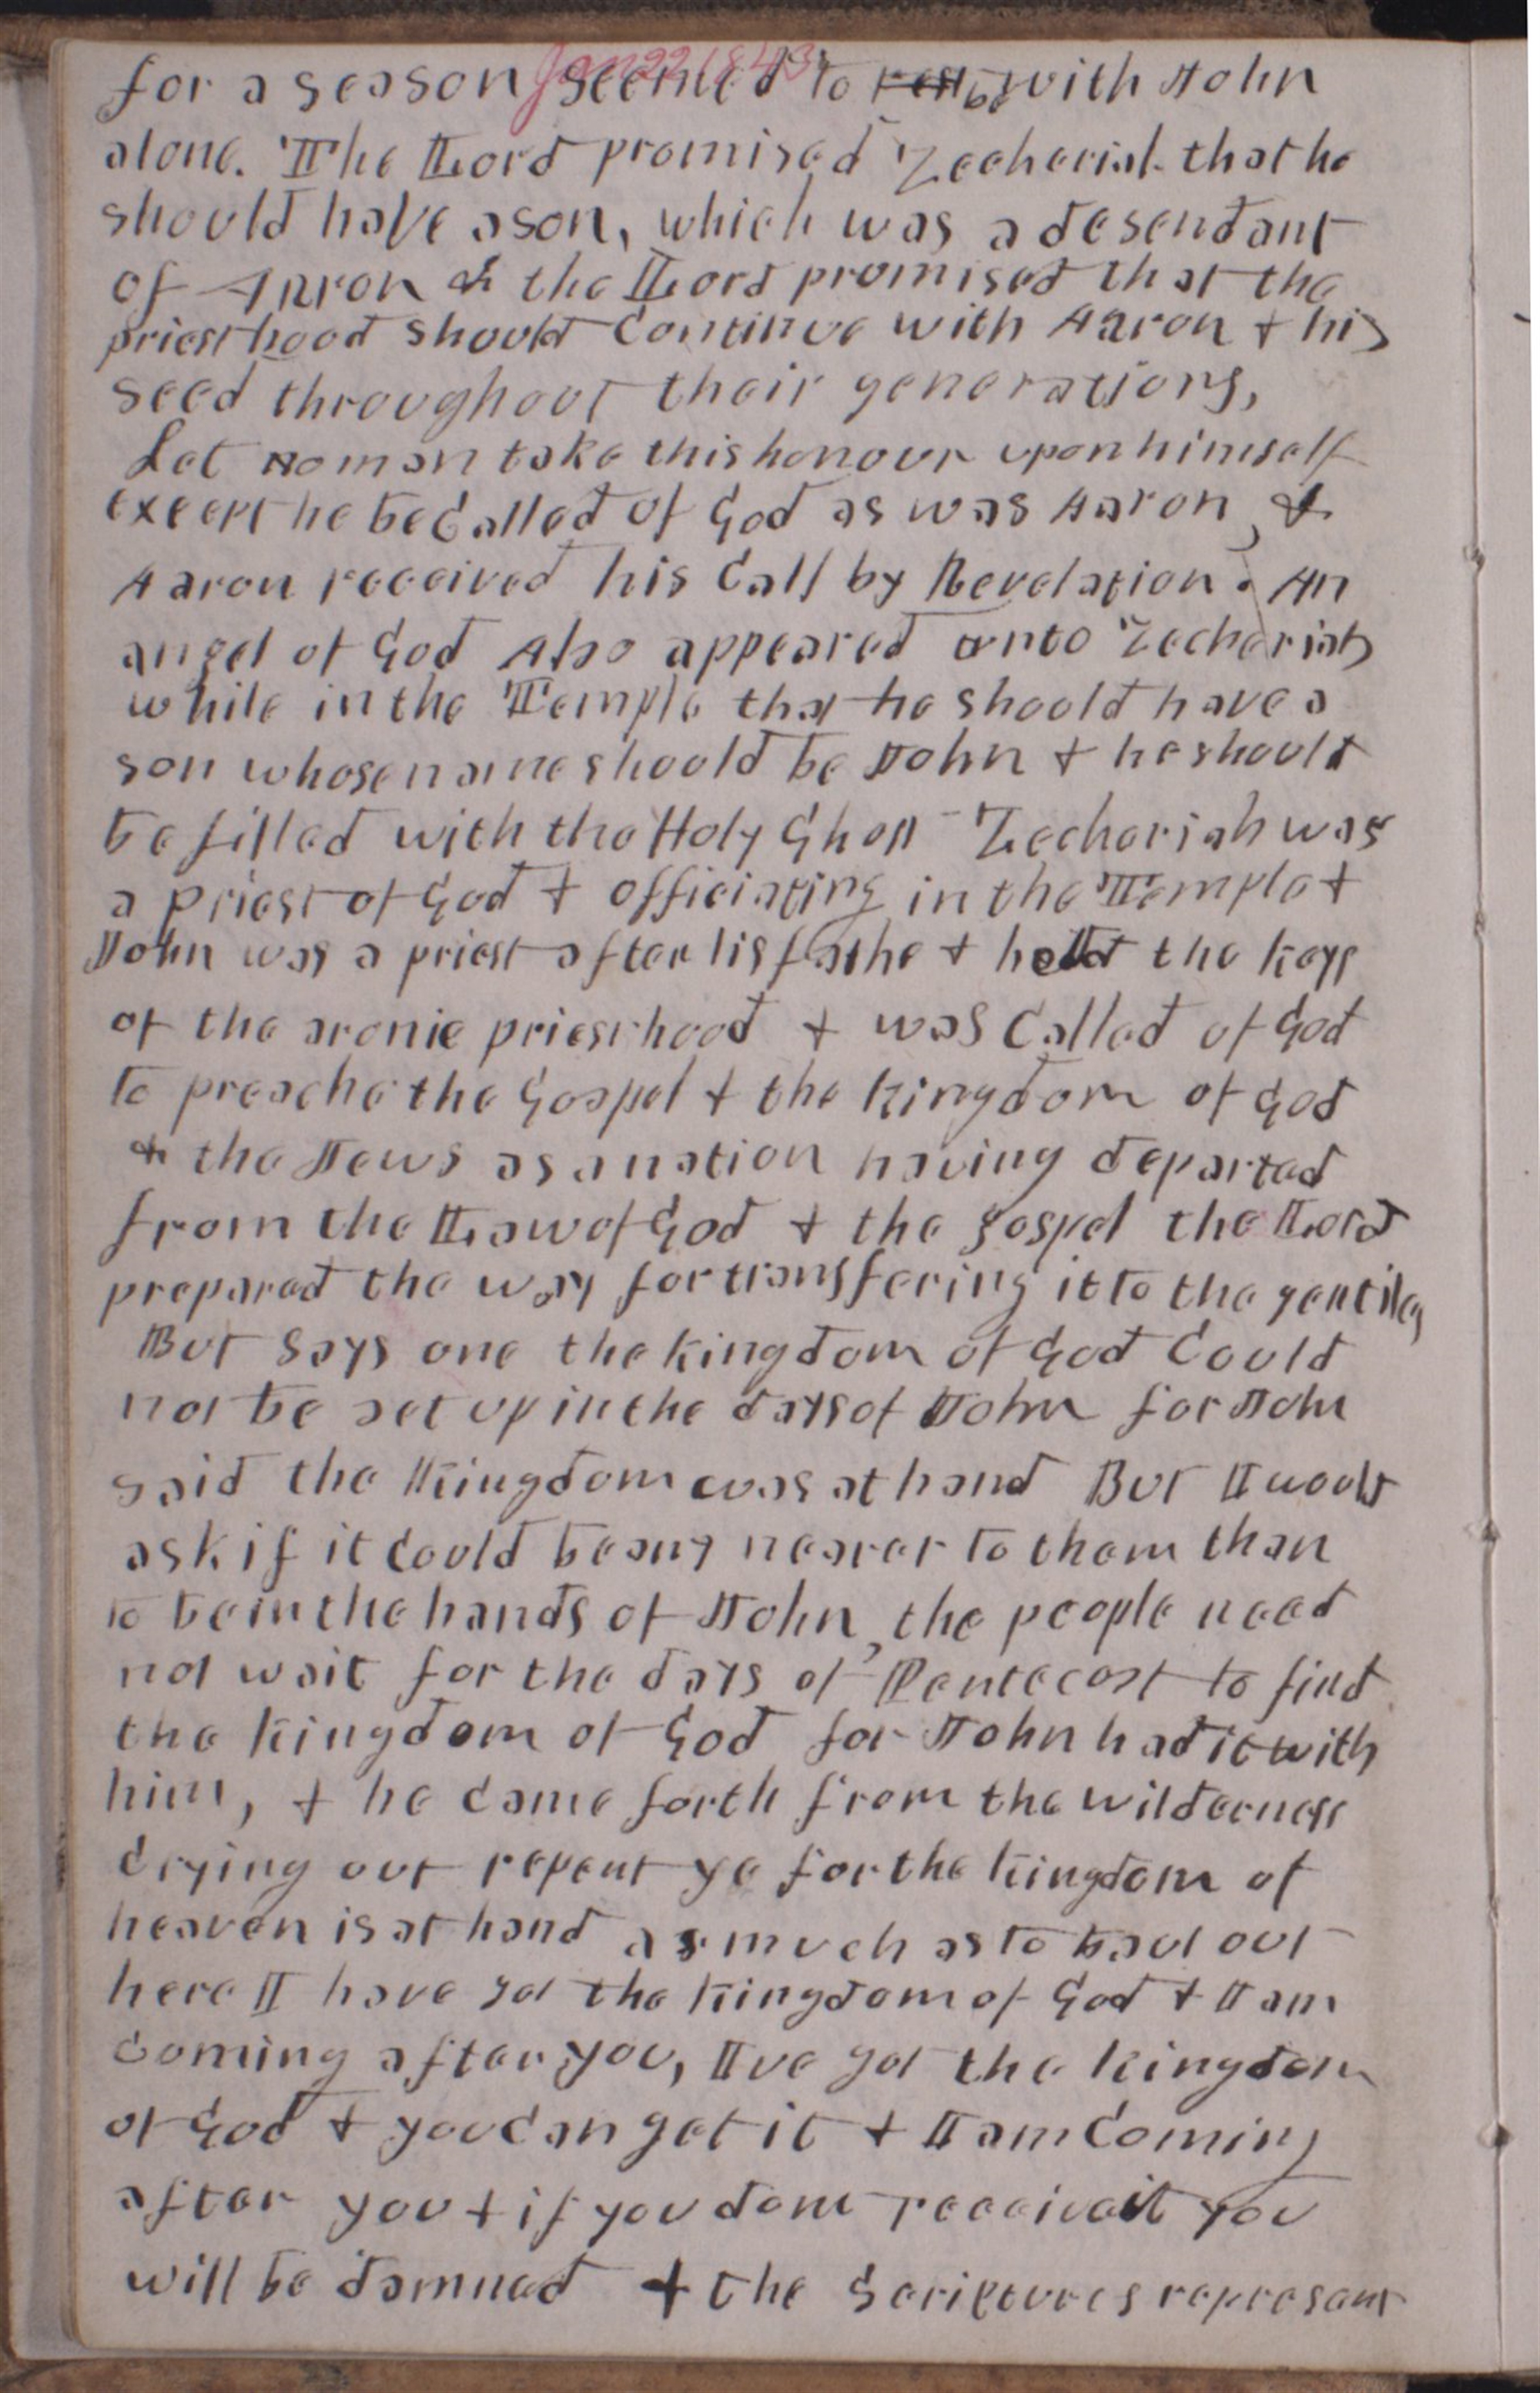 Jan 22 1843
for a season seemed to rest be with John
alone. The Lord promised Zecheriah that he
should have a son, which was a desendant
of Arron & the Lord promised that the
priesthood should Continue with Aaron & his
seed throughout their generations,
Let no man take this honour upon himself
except he be Called of God as was Aaron, &
Aaron received his Call by Revelation. An
angel of God Also appeared unto Zechariah
while in the Temple that he should have a
son whose name should be John & he should
be filled with the Holy Ghost Zechariah was
a priest of God & officiating in the Temple &
John was a priest after his fathe & held the keys
of the aronic priesthood & was Called of God
to preache the Gospel & the kingdom of God
& the Jews as a nation having departed
from the Law of God & the gospel the Lord
prepared the way for transfering it to the gentiles
But says one the kingdom of God Could
not be set up in the days of John for John
said the Kingdom was at hand But I would
ask if it Could be any nearer to them than
to be in the hands of John, the people need
not wait for the days of Pentecost to find
the kingdom of God for John had it with
him, & he Came forth from the wilderness
Crying out repent ye for the kingdom of
heaven is at hand as much as to baul out
here I have got the kingdom of God & I am
Coming after you, Ive got the kingdom
of God & you Can get it & I am Coming
after you & if you dont receive it you
will be damned & the Scriptures represent